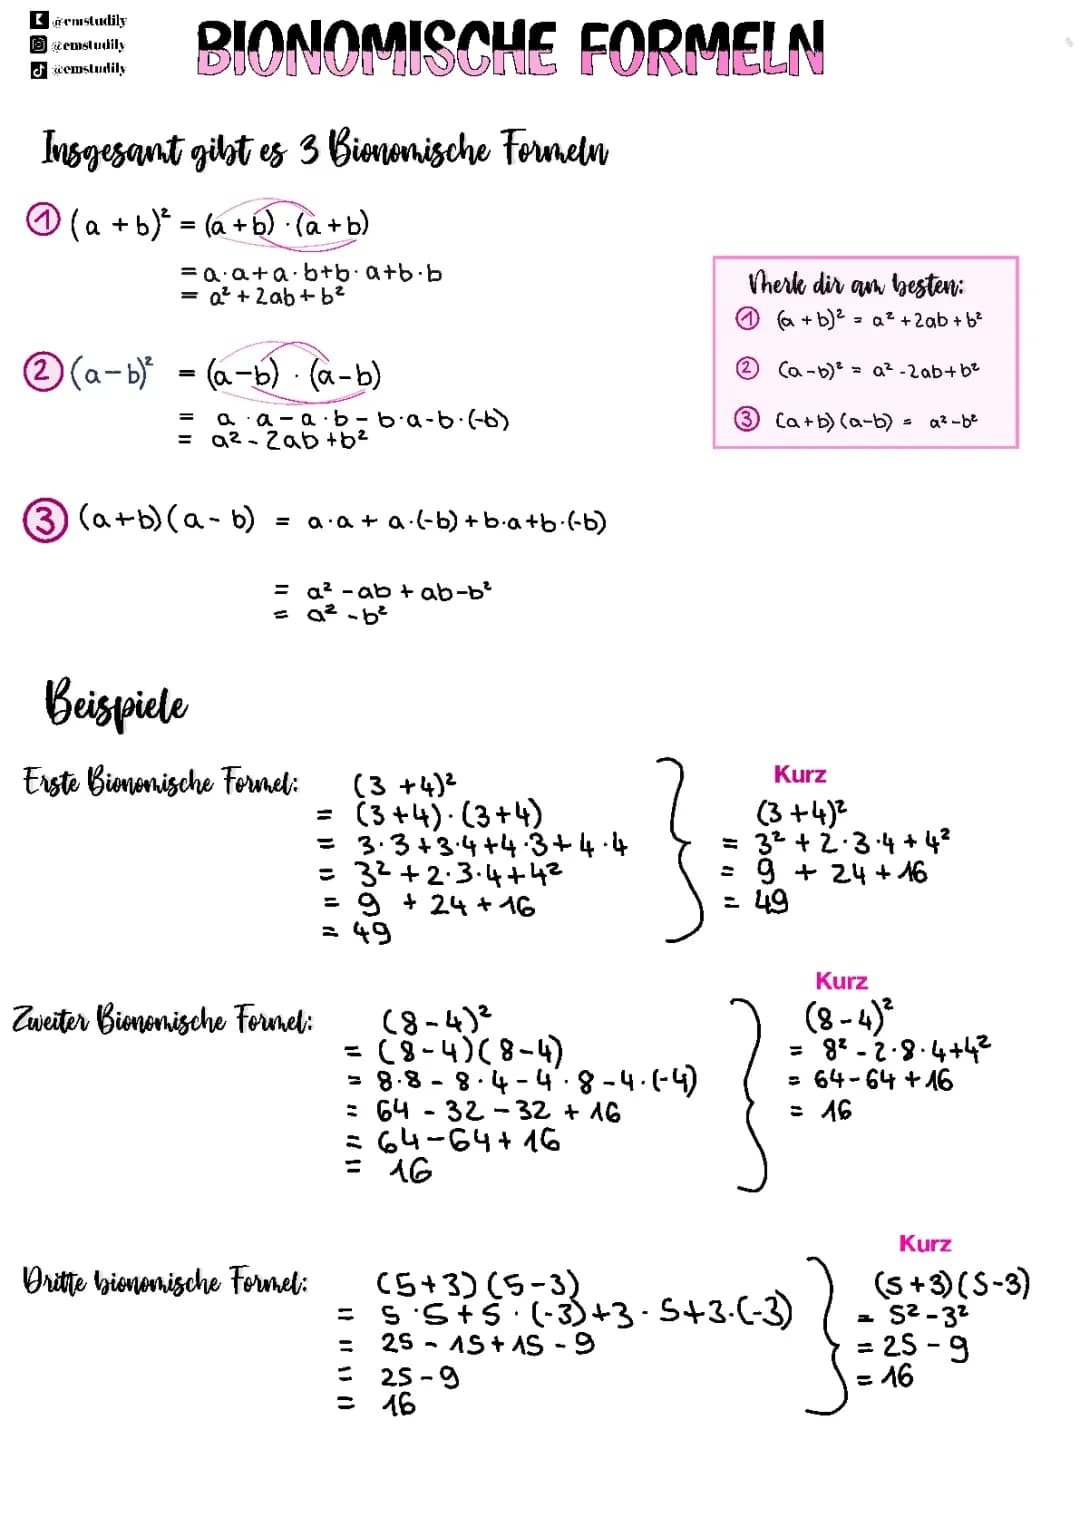 @emstudily
@emstudily
@emstudily
BIONOMISCHE FORMELN
Insgesamt gibt es 3 Bionomische Formeln
① (a + b)² = (a + b) · (a + b)
= a·a + a·b + b·a + b·b
= a² + 2ab + b²
② (a - b)² = (a - b) · (a - b)
= a · a - a · b - b · a - b · (-b)
= a² - 2ab + b²
③ (a + b) (a - b) = a·a + a·(-b) + b·a + b·(-b)
= a² - ab + ab - b²
= a² - b²
Merk dir am besten:
① (a + b)² = a² + 2ab + b²
② (a - b)² = a² - 2ab + b²
③ (a + b) (a - b) = a² - b²
Beispiele
Erste Bionomische Formel: (3 + 4)²
= (3 + 4) · (3 + 4)
= 3·3 + 3·4 + 4·3 + 4·4
= 3² + 2·3·4 + 4²
= 9 + 24 + 16
= 49
Kurz
(3 + 4)²
= 3² + 2·3·4 + 4²
= 9 + 24 + 16
= 49
Zweiter Bionomische Formel: (8 - 4)²
= (8 - 4) (8 - 4)
= 8·8 - 8·4 - 4·8 - 4·(-4)
= 64 - 32 - 32 + 16
= 64 - 64 + 16
= 16
Kurz
(8 - 4)²
= 8² - 2·8·4 + 4²
= 64 - 64 + 16
= 16
Dritte bionomische Formel: (5 + 3) (5 - 3)
= 5·5 + 5·(-3) + 3·5 + 3·(-3)
= 25 - 15 + 15 - 9
= 25 - 9
= 16
Kurz
(5 + 3) (5 - 3)
= 5² - 3²
= 25 - 9
= 16